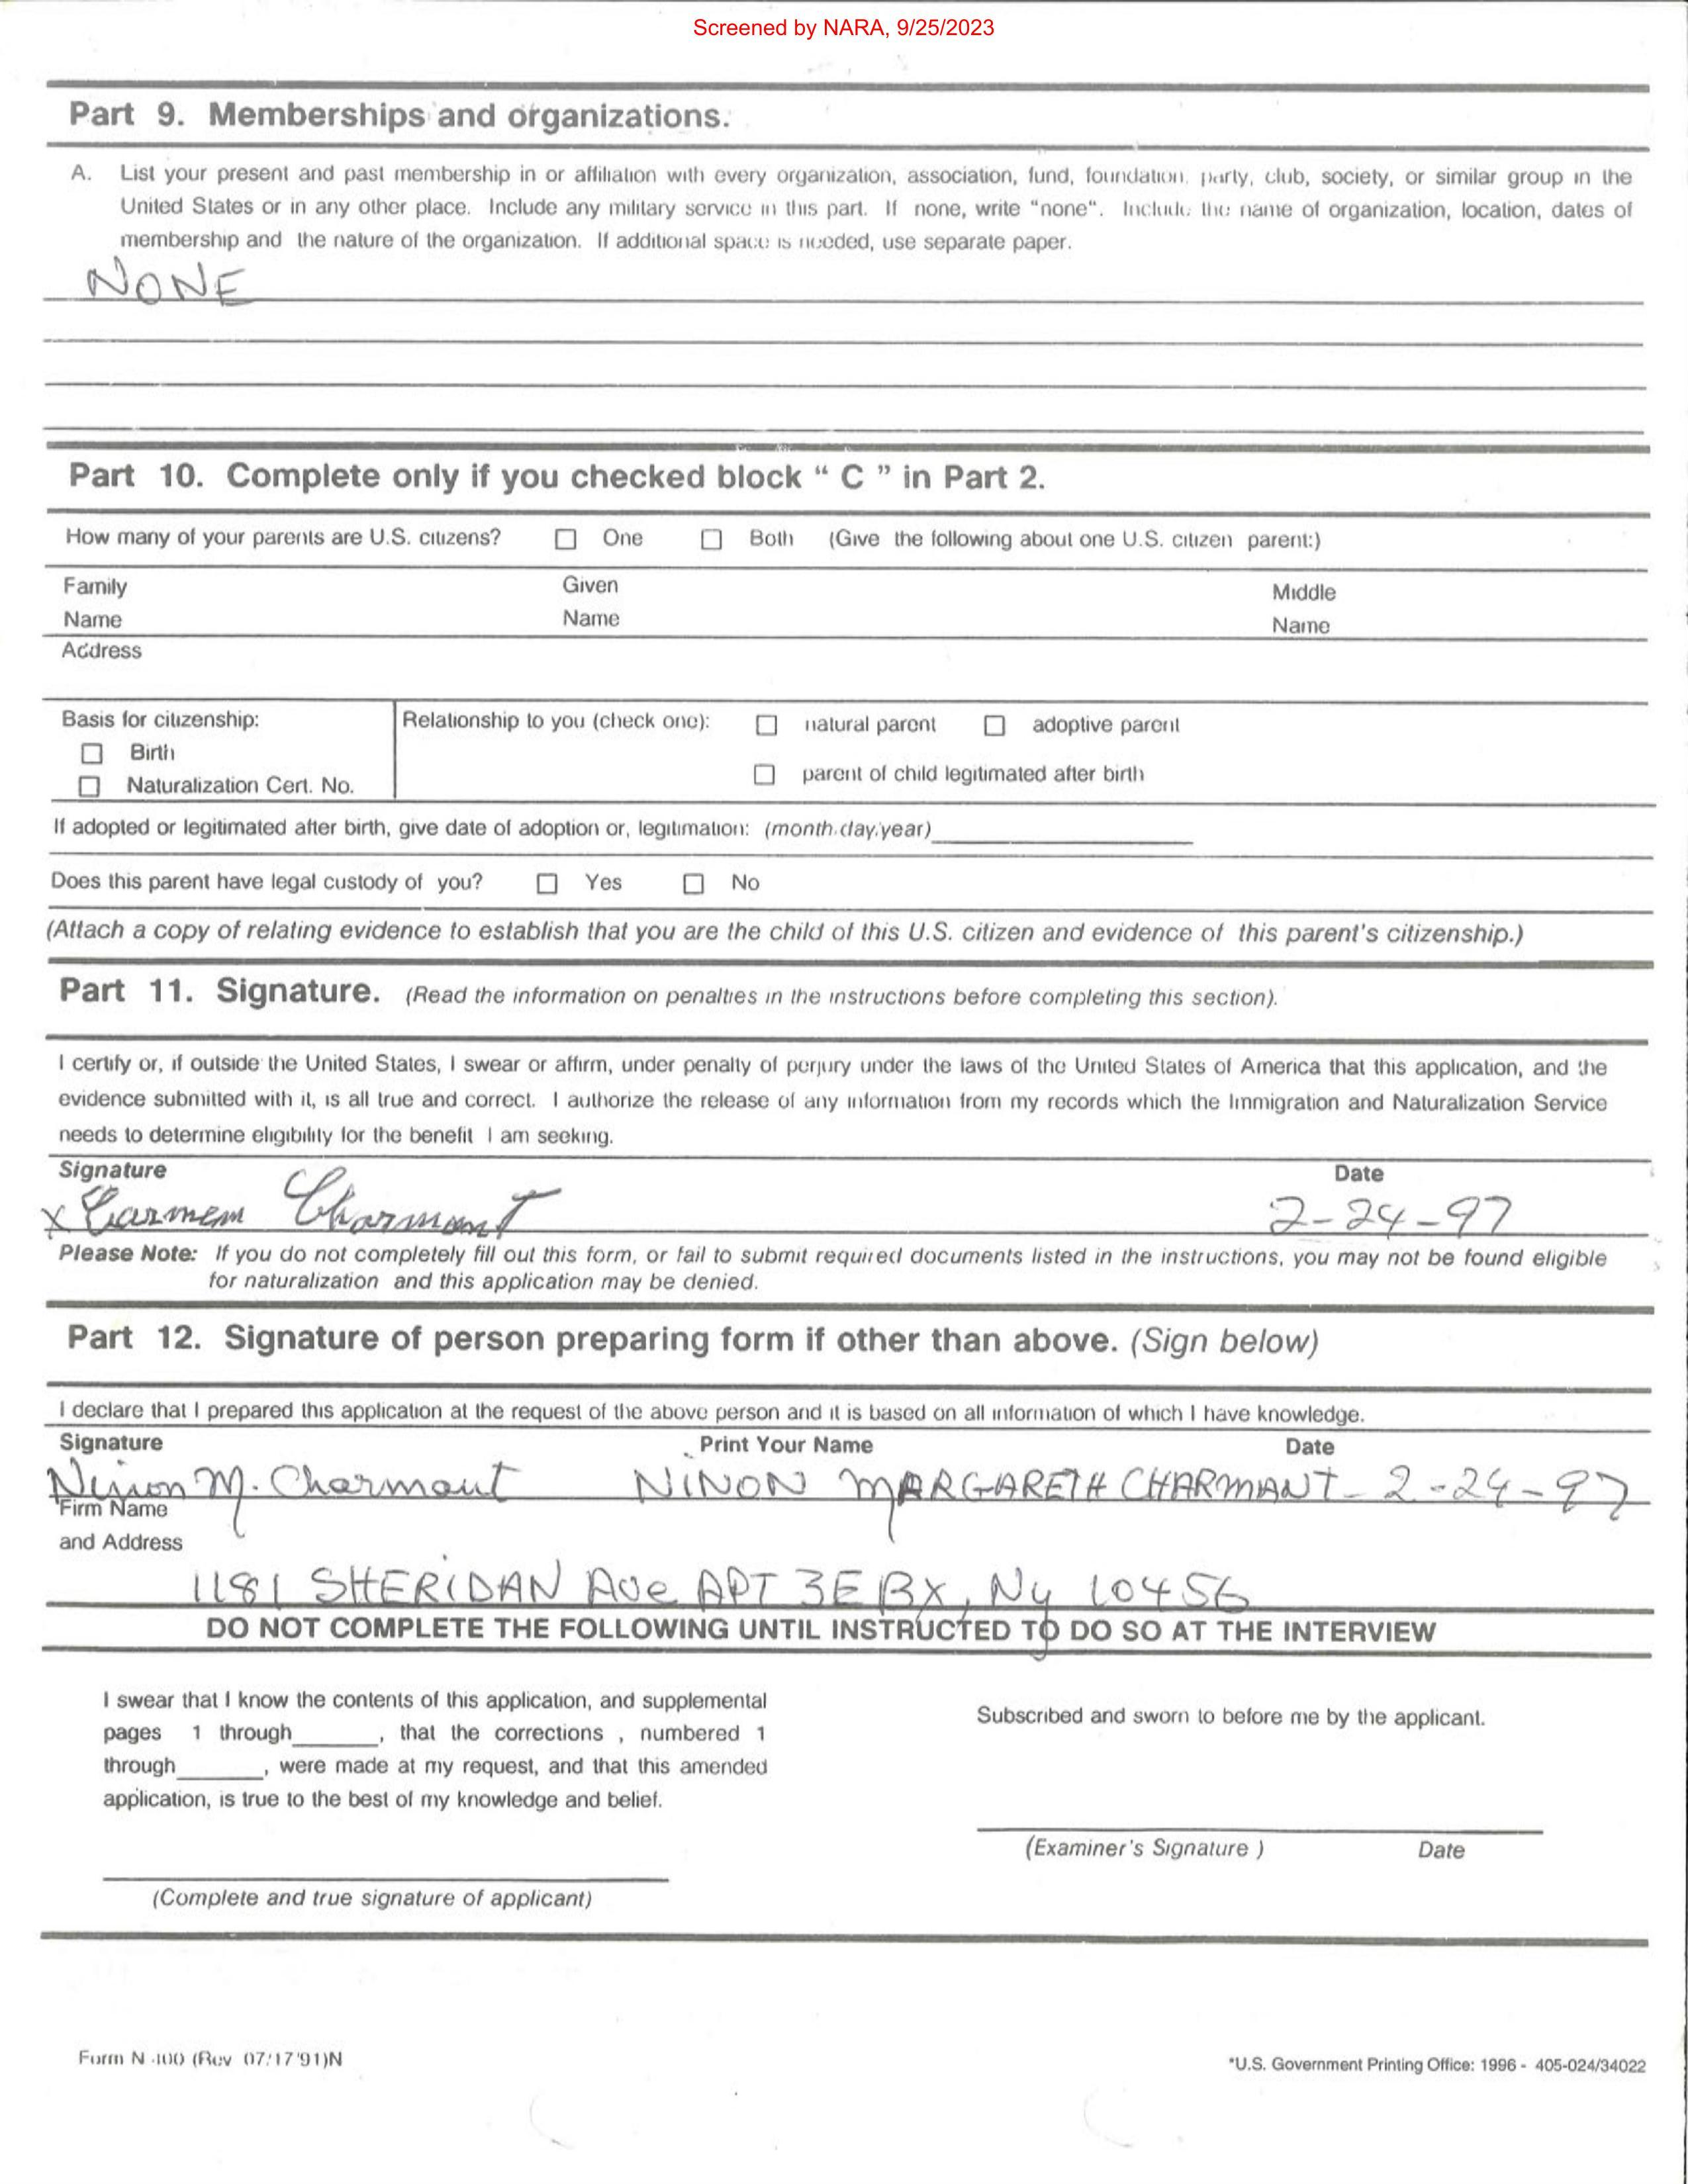 Screened by NARA, 9/25/2023
Part 9. Memberships and organizations.
A. List your present and past membership in or affiliation with every organization, association, fund, foundation, party, club, society, or similar group in the
United States or in any other place. Include any military service in this part. If none, write "none". Include the name of organization, location, dates of
membership and the nature of the organization. If additional space is needed, use separate paper.
NONE
Part 10. Complete only if you checked block " C " in Part 2.
How many of your parents are U.S. citizens? ☐ One ☐ Both (Give the following about one U.S. citizen parent:)
Family Given Middle
Name Name Name
Address
Basis for citizenship: Relationship to you (check one): ☐ natural parent ☐ adoptive parent
☐ Birth
☐ parent of child legitimated after birth
☐ Naturalization Cert. No.
If adopted or legitimated after birth, give date of adoption or, legitimation: (month.day.year)________
Does this parent have legal custody of you? ☐ Yes ☐ No
(Attach a copy of relating evidence to establish that you are the child of this U.S. citizen and evidence of this parent's citizenship.)
Part 11. Signature. (Read the information on penalties in the instructions before completing this section).
I certify or, if outside the United States, I swear or affirm, under penalty of perjury under the laws of the United States of America that this application, and the
evidence submitted with it, is all true and correct. I authorize the release of any information from my records which the Immigration and Naturalization Service
needs to determine eligibility for the benefit I am seeking.
Signature Date
x Carmem Charmant 2-24-97
Please Note: If you do not completely fill out this form, or fail to submit required documents listed in the instructions, you may not be found eligible
for naturalization and this application may be denied.
Part 12. Signature of person preparing form if other than above. (Sign below)
I declare that I prepared this application at the request of the above person and it is based on all information of which I have knowledge.
Signature Print Your Name Date
Ninon M. Charmant NINON MARGARETH CHARMANT - 2-24-97
Firm Name
and Address
1181 SHERIDAN Ave APT 3E BX, Ny 10456
DO NOT COMPLETE THE FOLLOWING UNTIL INSTRUCTED TO DO SO AT THE INTERVIEW
I swear that I know the contents of this application, and supplemental
pages 1 through______, that the corrections , numbered 1
through______, were made at my request, and that this amended
application, is true to the best of my knowledge and belief.
Subscribed and sworn to before me by the applicant.
(Examiner's Signature ) Date
(Complete and true signature of applicant)
Form N-400 (Rev 07/17/91)N
*U.S. Government Printing Office: 1996 - 405-024/34022